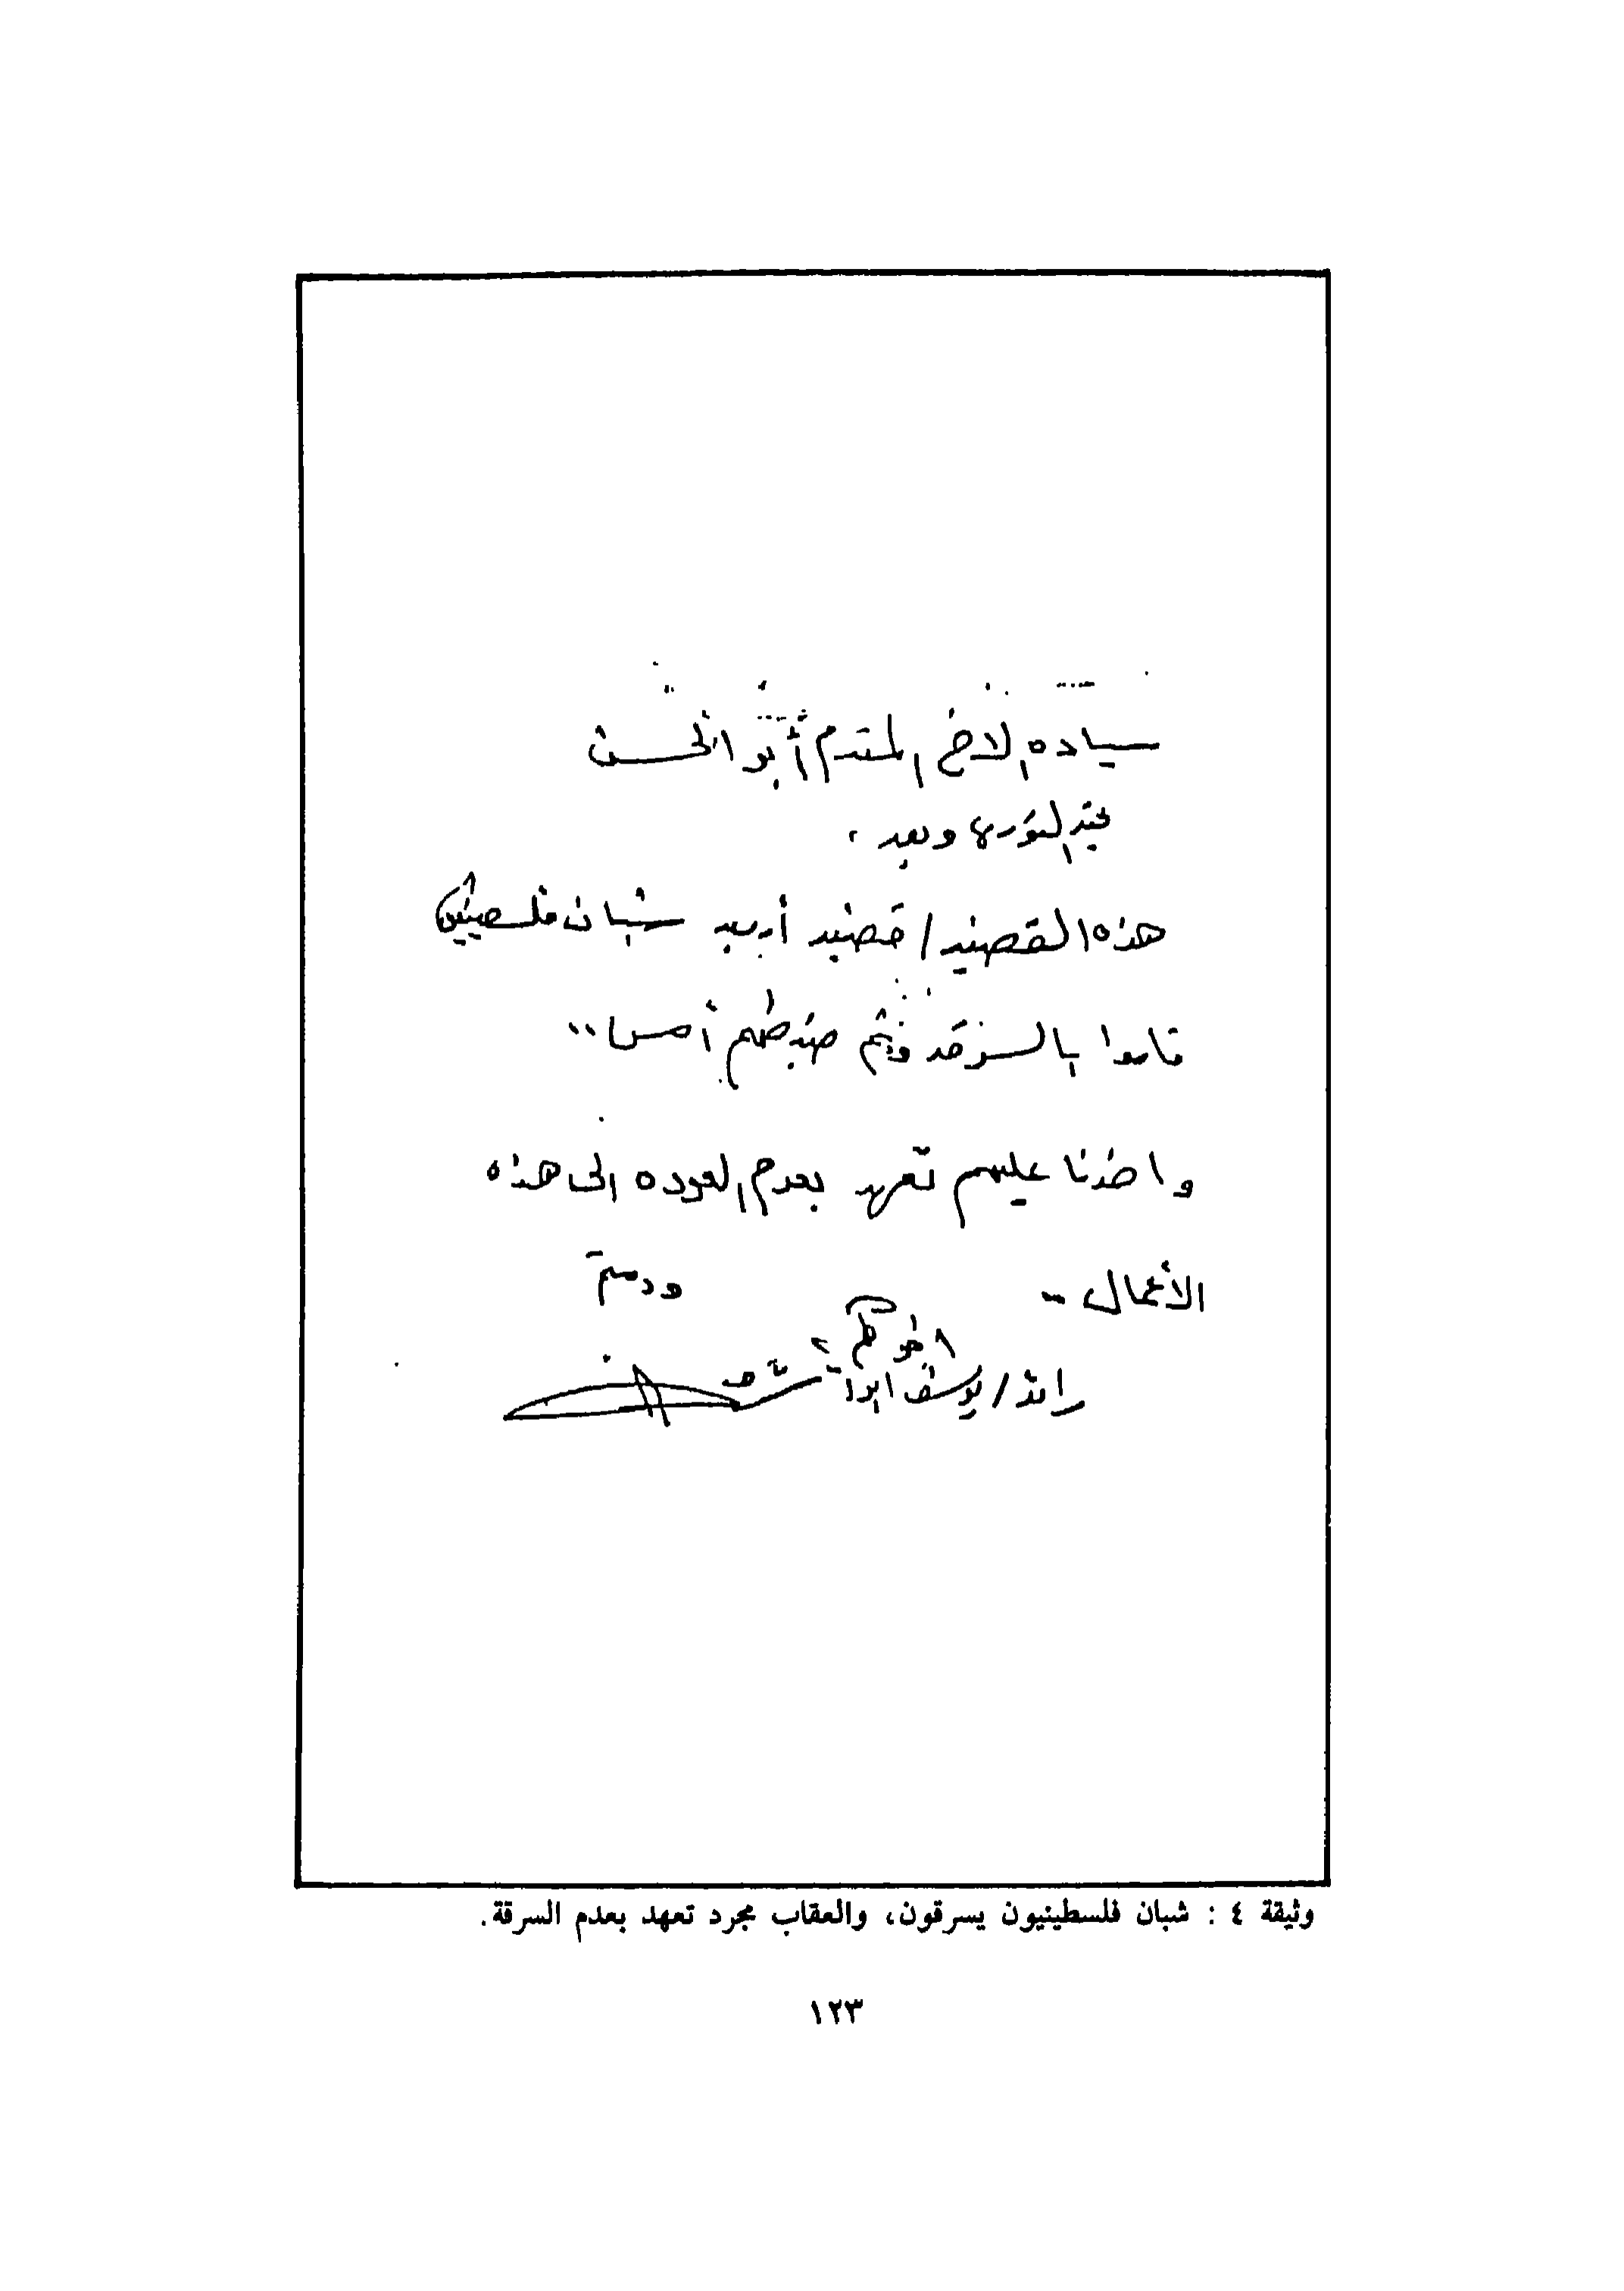 سياده الاخ المقدم أبو الحسن
تحية الثوره وبعد ،
هذه القضية / قضية أربعة شبان فلسطينيين
قاموا بالسرقة وتم ضبطهم أمس ..
واخذنا عليهم تعهد بعدم العوده الى هذه
الأعمال -
ودمتم
اخوكم
رائد / يوسف ابو
وثيقة ٤ : شبان فلسطينيون يسرقون، والعقاب مجرد تعهد بعدم السرقة.
١٢٣